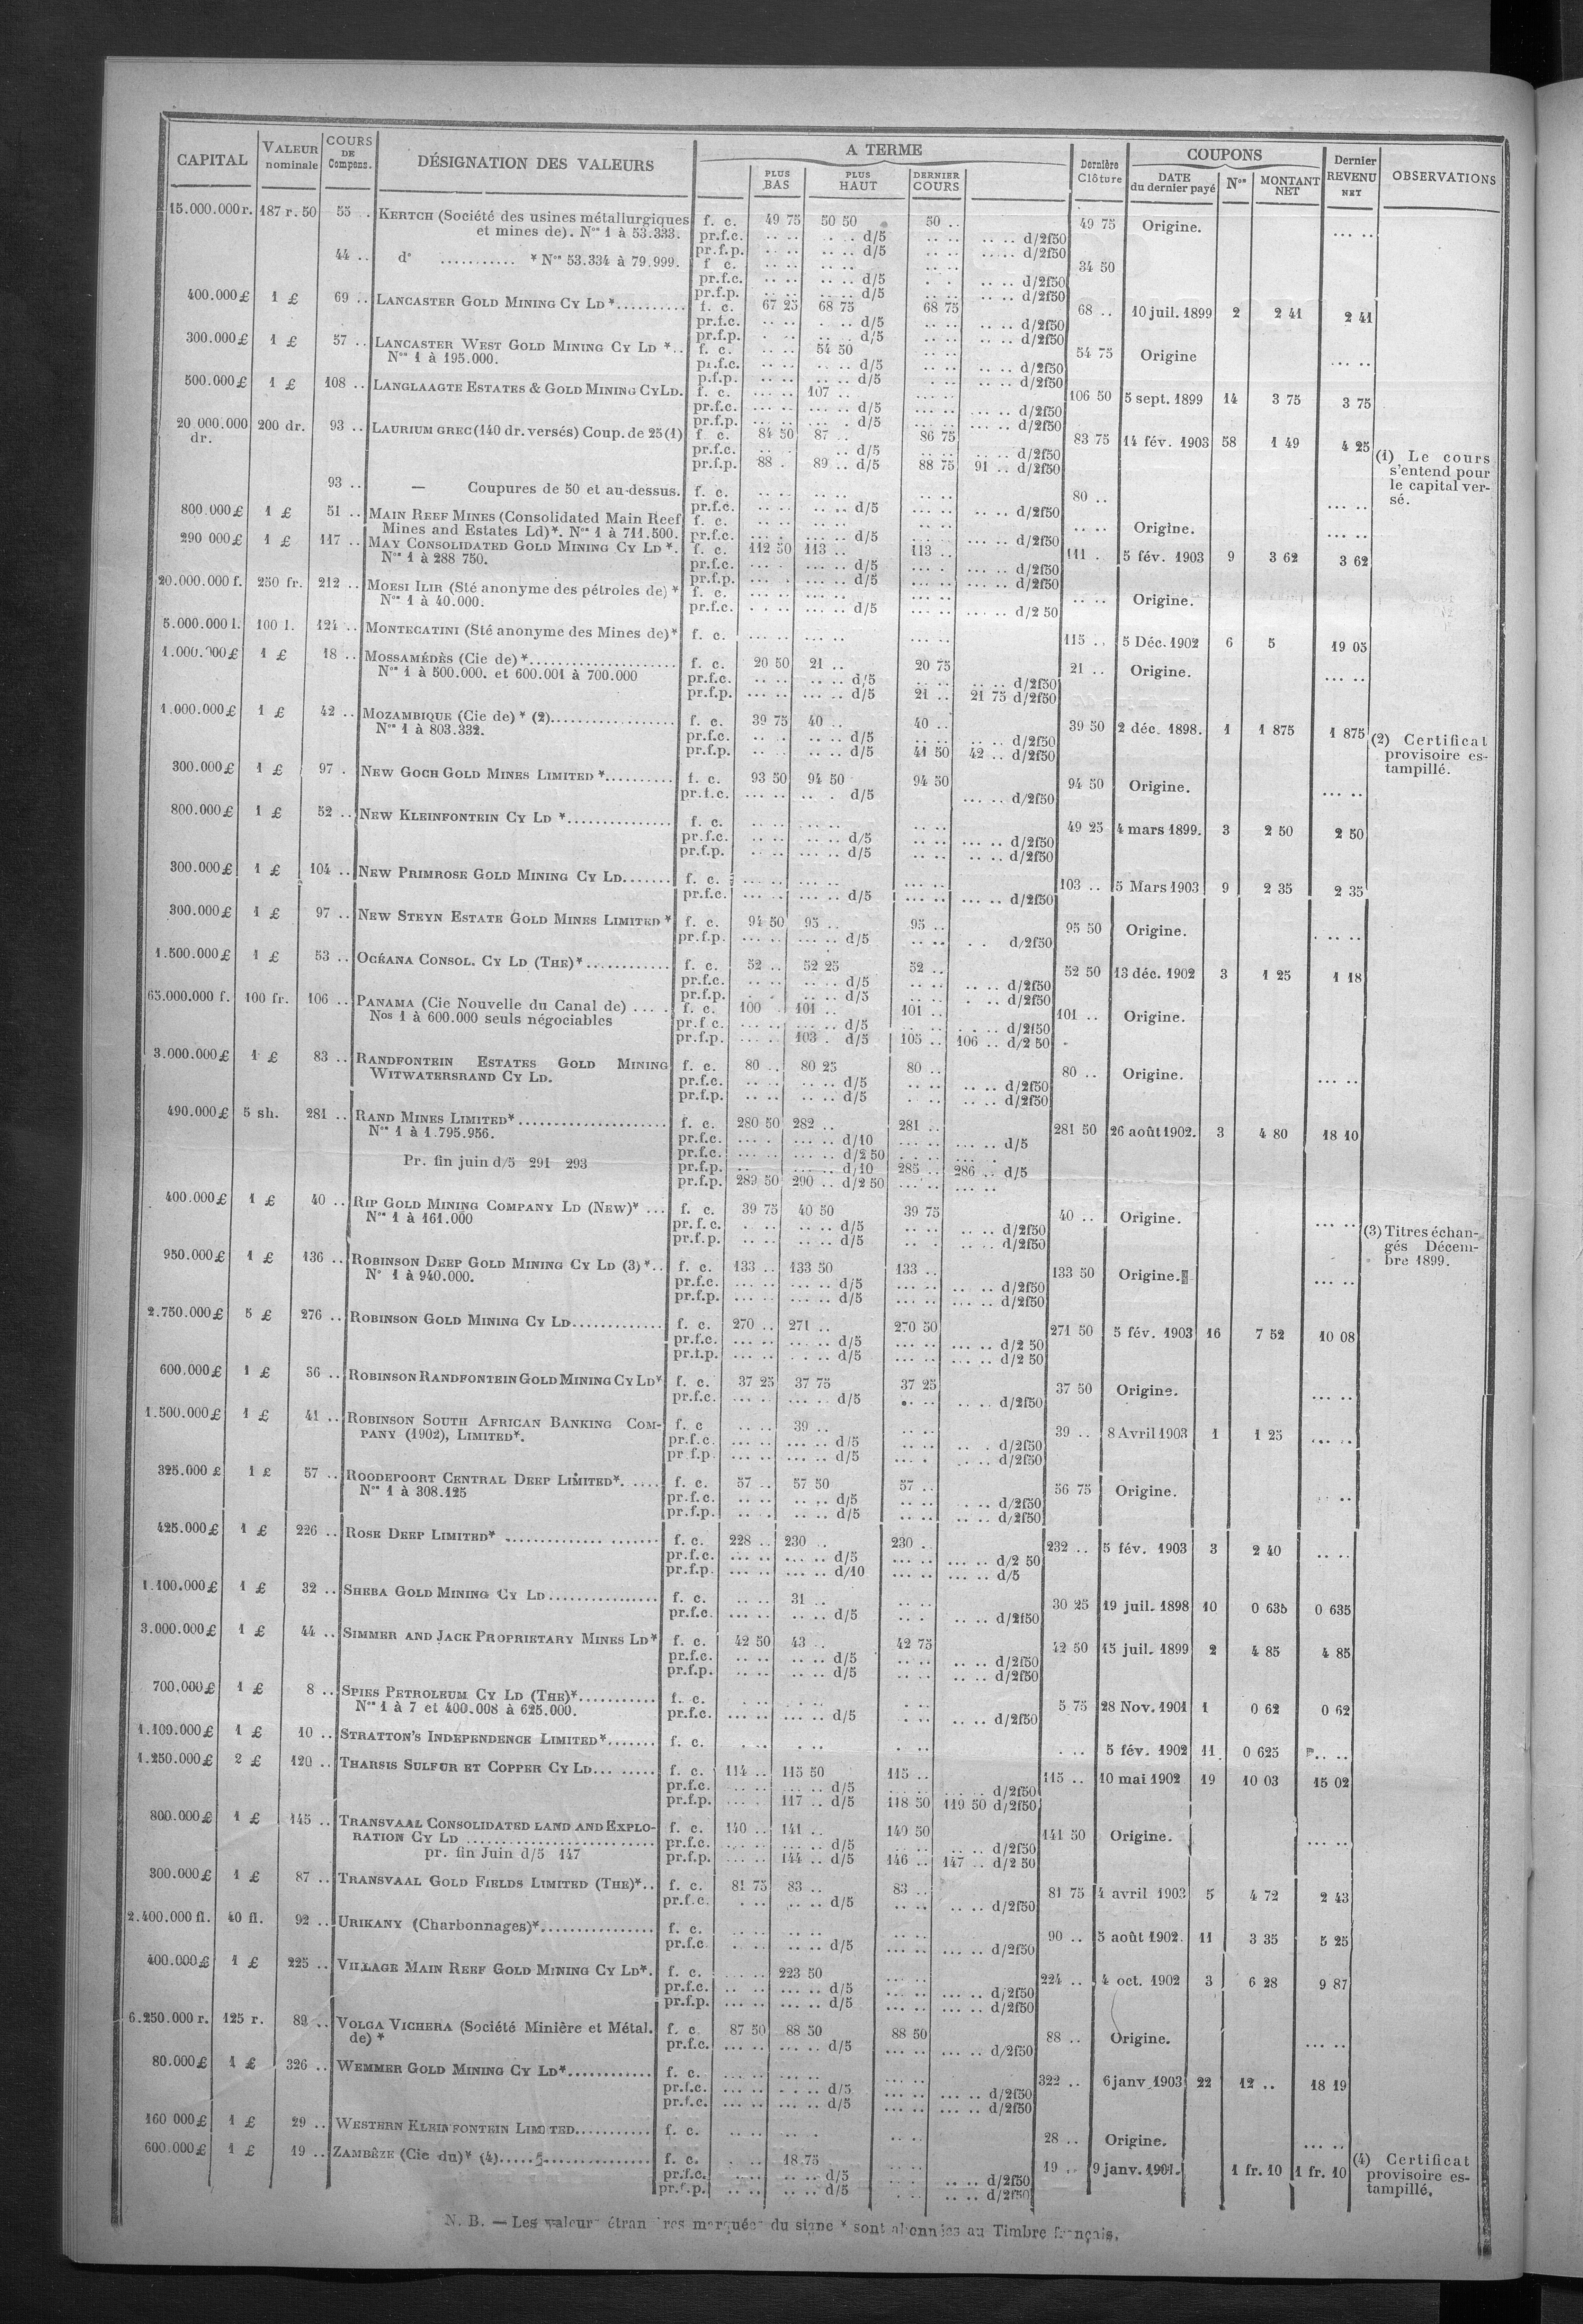 CAPITAL VALEUR nominale COURS DE Compens. DÉSIGNATION DES VALEURS A TERME PLUS BAS PLUS HAUT DERNIER COURS Dernière Clôture COUPONS DATE du dernier payé Nos MONTANT NET Dernier REVENU NET OBSERVATIONS
15.000.000 r. 187 r. 50 55 .. KERTCH (Société des usines métallurgiques f. c. 49 75 50 50 50 .. 49 75 Origine. ... ..
et mines de). Nos 1 à 53.333. pr.f.c. d/5 d/2f50
pr.f.p. d/5 d/2f50
44 .. do ........... * Nos 53.334 à 79.999. f. c. 34 50
pr.f.c. d/5 d/2f50
pr.f.p. d/5 d/2f50
400.000 £ 1 £ 69 .. LANCASTER GOLD MINING CY LD*.......... f. c. 67 25 68 75 68 75 68 .. 10 juil. 1899 2 2 41 2 41
pr.f.c. d/5 d/2f50
pr.f.p. d/5 d/2f50
300.000 £ 1 £ 57 .. LANCASTER WEST GOLD MINING CY LD *.. f. c. 54 50 54 75 Origine ... ..
Nos 1 à 195.000. pr.f.c. d/5 d/2f50
p.f.p. d/5 d/2f50
500.000 £ 1 £ 108 .. LANGLAAGTE ESTATES & GOLD MINING CY LD. f. c. 107 .. 106 50 5 sept. 1899 14 3 75 3 75
pr.f.c. d/5 d/2f50
pr.f.p. d/5 d/2f50
20.000.000 dr. 200 dr. 93 .. LAURIUM GREC (140 dr. versés) Coup. de 25 (1) f. c. 84 50 87 .. 86 75 83 75 14 fév. 1903 58 1 49 4 25
pr.f.c. d/5 d/2f50
pr.f.p. 88 . 89 .. d/5 88 75 91 .. d/2f50
(1) Le cours s'entend pour le capital versé.
93 .. — Coupures de 50 et au-dessus. f. c. 80 ..
pr.f.c. d/5 d/2f50
800.000 £ 1 £ 51 .. MAIN REEF MINES (Consolidated Main Reef f. c. Origine. ... ..
Mines and Estates Ld)*. Nos 1 à 711.500. pr.f.c. d/5 d/2f50
290 000 £ 1 £ 117 .. MAY CONSOLIDATED GOLD MINING CY LD *. f. c. 112 50 113 .. 113 .. 111 . 5 fév. 1903 9 3 62 3 62
Nos 1 à 288 750. pr.f.c. d/5 d/2f50
pr.f.p. d/5 d/2f50
20.000.000 f. 250 fr. 212 .. MOESI ILIR (Sté anonyme des pétroles de) * f. c. Origine.
Nos 1 à 40.000. pr.f.c. d/5 d/2 50
5.000.000 l. 100 l. 124 .. MONTECATINI (Sté anonyme des Mines de)* f. c. 115 .. 5 Déc. 1902 6 5 19 05
1.000.000 £ 1 £ 18 .. MOSSAMÉDÈS (Cie de) *..................... f. c. 20 50 21 .. 20 75 21 .. Origine. ... ..
Nos 1 à 500.000. et 600.001 à 700.000 pr.f.c. d/5 d/2f50
pr.f.p. d/5 21 .. 21 75 d/2f50
1.000.000 £ 1 £ 42 .. MOZAMBIQUE (Cie de) * (2).................. f. c. 39 75 40 .. 40 .. 39 50 2 déc. 1898. 1 1 875 1 875
Nos 1 à 803.332. pr.f.c. d/5 d/2f50
pr.f.p. d/5 41 50 42 .. d/2f50
(2) Certificat provisoire estampillé.
300.000 £ 1 £ 97 . NEW GOCH GOLD MINES LIMITED *.......... f. c. 93 50 94 50 94 50 94 50 Origine. ... ..
pr.f.c. d/5 d/2f50
800.000 £ 1 £ 52 .. NEW KLEINFONTEIN CY LD *............... f. c. 49 25 4 mars 1899. 3 2 50 2 50
pr.f.c. d/5 d/2f50
pr.f.p. d/5 d/2f50
300.000 £ 1 £ 104 .. NEW PRIMROSE GOLD MINING CY LD....... f. c. 103 .. 5 Mars 1903 9 2 35 2 35
pr.f.c. d/5 d/2f50
300.000 £ 1 £ 97 .. NEW STEYN ESTATE GOLD MINES LIMITED * f. c. 94 50 95 .. 95 .. 95 50 Origine. ... ..
pr.f.p. d/5 d/2f50
1.500.000 £ 1 £ 53 .. OCÉANA CONSOL. CY LD (THE)*............ f. c. 52 .. 52 25 52 .. 52 50 13 déc. 1902 3 1 25 1 18
pr.f.c. d/5 d/2f50
pr.f.p. d/5 d/2f50
65.000.000 f. 100 fr. 106 .. PANAMA (Cie Nouvelle du Canal de) ..... f. c. 100 . 101 .. 101 .. 101 .. Origine.
Nos 1 à 600.000 seuls négociables pr.f.c. d/5 d/2f50
pr.f.p. 103 . d/5 105 .. 106 .. d/2 50
3.000.000 £ 1 £ 83 .. RANDFONTEIN ESTATES GOLD MINING f. c. 80 .. 80 25 80 .. 80 .. Origine. ... ..
WITWATERSRAND CY LD. pr.f.c. d/5 d/2f50
pr.f.p. d/5 d/2f50
490.000 £ 5 sh. 281 .. RAND MINES LIMITED*..................... f. c. 280 50 282 .. 281 .. 281 50 26 août 1902. 3 4 80 18 10
Nos 1 à 1.795.956. pr.f.c. d/10 d/5
pr.f.c. d/2 50
Pr. fin juin d/5 291 293 pr.f.p. d/10 285 .. 286 .. d/5
pr.f.p. 289 50 290 .. d/2 50
400.000 £ 1 £ 40 .. RIP GOLD MINING COMPANY LD (NEW)* ... f. c. 39 75 40 50 39 75 40 .. Origine. ... ..
Nos 1 à 161.000 pr.f.c. d/5 d/2f50
pr.f.p. d/5 d/2f50
(3) Titres échangés Décembre 1899.
950.000 £ 1 £ 136 .. ROBINSON DEEP GOLD MINING CY LD (3) *.. f. c. 133 .. 133 50 133 .. 133 50 Origine. ... ..
No 1 à 940.000. pr.f.c. d/5 d/2f50
pr.f.p. d/5 d/2f50
2.750.000 £ 5 £ 276 .. ROBINSON GOLD MINING CY LD............. f. c. 270 .. 271 .. 270 50 271 50 5 fév. 1903 16 7 52 10 08
pr.f.c. d/5 d/2 50
pr.f.p. d/5 d/2 50
600.000 £ 1 £ 36 .. ROBINSON RANDFONTEIN GOLD MINING CY LD* f. c. 37 25 37 75 37 25 37 50 Origine. ... ..
pr.f.c. d/5 d/2f50
1.500.000 £ 1 £ 41 .. ROBINSON SOUTH AFRICAN BANKING COM- f. c 39 .. 39 .. 8 Avril 1903 1 1 25
PANY (1902), LIMITED*. pr.f.c. d/5 d/2f50
pr f.p. d/5 d/2f50
325.000 £ 1 £ 57 .. ROODEPOORT CENTRAL DEEP LIMITED*. ..... f. c. 57 .. 57 50 57 .. 56 75 Origine.
Nos 1 à 308.125 pr.f.c. d/5 d/2f50
pr.f.p. d/5 d/2f50
425.000 £ 1 £ 226 .. ROSE DEEP LIMITED* .................... f. c. 228 .. 230 .. 230 .. 232 .. 5 fév. 1903 3 2 40
pr.f.c. d/5 d/2 50
pr.f.p. d/10 d/5
1.100.000 £ 1 £ 32 .. SHEBA GOLD MINING CY LD................ f. c. 31 .. 30 25 19 juil. 1898 10 0 635 0 635
pr.f.c. d/5 d/2f50
3.000.000 £ 1 £ 44 .. SIMMER AND JACK PROPRIETARY MINES LD* f. c. 42 50 43 .. 42 75 42 50 15 juil. 1899 2 4 85 4 85
pr.f.c. d/5 d/2f50
pr.f.p. d/5 d/2f50
700.000 £ 1 £ 8 .. SPIES PETROLEUM CY LD (THE)*........... f. c. 5 75 28 Nov. 1901 1 0 62 0 62
Nos 1 à 7 et 400.008 à 625.000. pr.f.c. d/5 d/2f50
1.100.000 £ 1 £ 10 .. STRATTON'S INDEPENDENCE LIMITED*....... f. c. 5 fév. 1902 11 0 625
1.250.000 £ 2 £ 120 .. THARSIS SULFUR ET COPPER CY LD... ..... f. c. 114 .. 115 50 115 .. 115 .. 10 mai 1902 19 10 03 15 02
pr.f.c. d/5 d/2f50
pr.f.p. 117 .. d/5 118 50 119 50 d/2f50
800.000 £ 1 £ 145 .. TRANSVAAL CONSOLIDATED LAND AND EXPLO- f. c. 140 .. 141 .. 140 50 141 50 Origine. ... ..
RATION CY LD .......................... pr.f.c. d/5 d/2f50
pr. fin Juin d/5 147 pr.f.p. 144 .. d/5 146 .. 147 .. d/2 50
300.000 £ 1 £ 87 .. TRANSVAAL GOLD FIELDS LIMITED (THE)*.. f. c. 81 75 83 .. 83 .. 81 75 4 avril 1903 5 4 72 2 43
pr.f.c. d/5 d/2f50
2.400.000 fl. 40 fl. 92 .. URIKANY (Charbonnages)*................ f. c. 90 .. 5 août 1902. 11 3 35 5 25
pr.f.c d/5 d/2f50
400.000 £ 1 £ 225 .. VILLAGE MAIN REEF GOLD MINING CY LD*. f. c. 223 50 224 .. 4 oct. 1902 3 6 28 9 87
pr.f.c. d/5 d/2f50
pr.f.p. d/5 d/2f50
6.250.000 r. 125 r. 89 .. VOLGA VICHERA (Société Minière et Métal. f. c 87 50 88 50 88 50 88 .. Origine. ... ..
de) * pr.f.c. d/5 d/2f50
80.000 £ 1 £ 326 .. WEMMER GOLD MINING CY LD*............ f. c. 322 .. 6 janv. 1903 22 12 .. 18 19
pr.f.c. d/5 d/2f50
pr.f.c. d/5 d/2f50
160 000 £ 1 £ 29 .. WESTERN KLEINFONTEIN LIMITED........... f. c. 28 .. Origine. ... ..
600.000 £ 1 £ 19 .. ZAMBÈZE (Cie du)* (4)................... f. c. 18.75 19 .. 9 janv. 1901. 1 fr. 10 1 fr. 10
pr.f.c. d/5 d/2f50
pr.f.p. d/5 d/2f50
(4) Certificat provisoire estampillé.
N. B. — Les valeurs étrangères marquées du signe * sont abonnées au Timbre français.